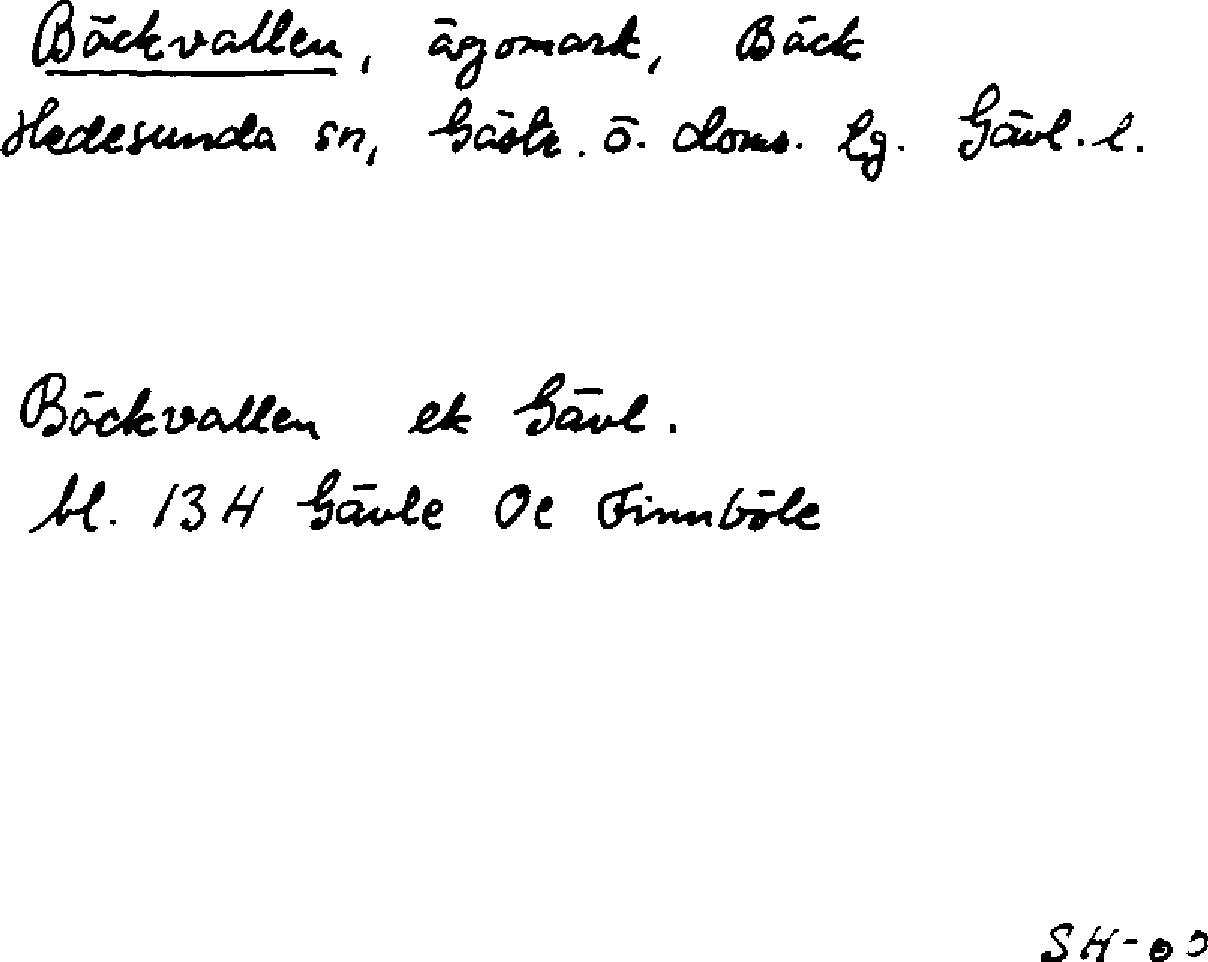 Bäckvallen, ägomark, Bäck
Hedesunda sn, Gästr. ö. doms. lg. Gävl. l.
Bäckvallen ek Gävl.
bl. 13 H Gävle Oe Finnböle
SH-00